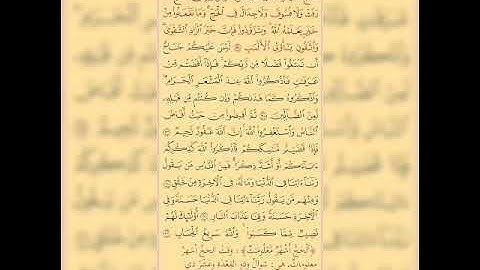 رَفَثَ وَلَا فُسُوقَ وَلَا جِدَالَ فِي الْحَجِّ وَمَا تَفْعَلُوا مِنْ
خَيْرٍ يَعْلَمْهُ اللَّهُ وَتَزَوَّدُوا فَإِنَّ خَيْرَ الزَّادِ التَّقْوَى
وَاتَّقُونِ يَا أُولِي الْأَلْبَابِ لَيْسَ عَلَيْكُمْ جُنَاحٌ
أَن تَبْتَغُوا فَضْلًا مِّن رَّبِّكُمْ فَإِذَا أَفَضْتُم مِّنْ
عَرَفَاتٍ فَاذْكُرُوا اللَّهَ عِندَ الْمَشْعَرِ الْحَرَامِ
وَاذْكُرُوهُ كَمَا هَدَاكُمْ وَإِن كُنتُم مِّن قَبْلِهِ
لَمِنَ الضَّالِّينَ ثُمَّ أَفِيضُوا مِنْ حَيْثُ أَفَاضَ
النَّاسُ وَاسْتَغْفِرُوا اللَّهَ إِنَّ اللَّهَ غَفُورٌ رَّحِيمٌ
فَإِذَا قَضَيْتُم مَّنَاسِكَكُمْ فَاذْكُرُوا اللَّهَ كَذِكْرِكُمْ
آبَاءَكُمْ أَوْ أَشَدَّ ذِكْرًا فَمِنَ النَّاسِ مَن يَقُولُ
رَبَّنَا آتِنَا فِي الدُّنْيَا وَمَا لَهُ فِي الْآخِرَةِ مِنْ خَلَاقٍ
وَمِنْهُم مَّن يَقُولُ رَبَّنَا آتِنَا فِي الدُّنْيَا حَسَنَةً وَفِي
الْآخِرَةِ حَسَنَةً وَقِنَا عَذَابَ النَّارِ أُولَئِكَ لَهُمْ
نَصِيبٌ مِّمَّا كَسَبُوا وَاللَّهُ سَرِيعُ الْحِسَابِ
﴿الْحَجُّ أَشْهُرٌ مَّعْلُومَاتٌ﴾: وَقْتُ الْحَجِّ أَشْهُرٌ
مَعْلُومَاتٌ، هِيَ: شَوَّالٌ وَذُو الْقَعْدَةِ وَعَشْرُ ذِي